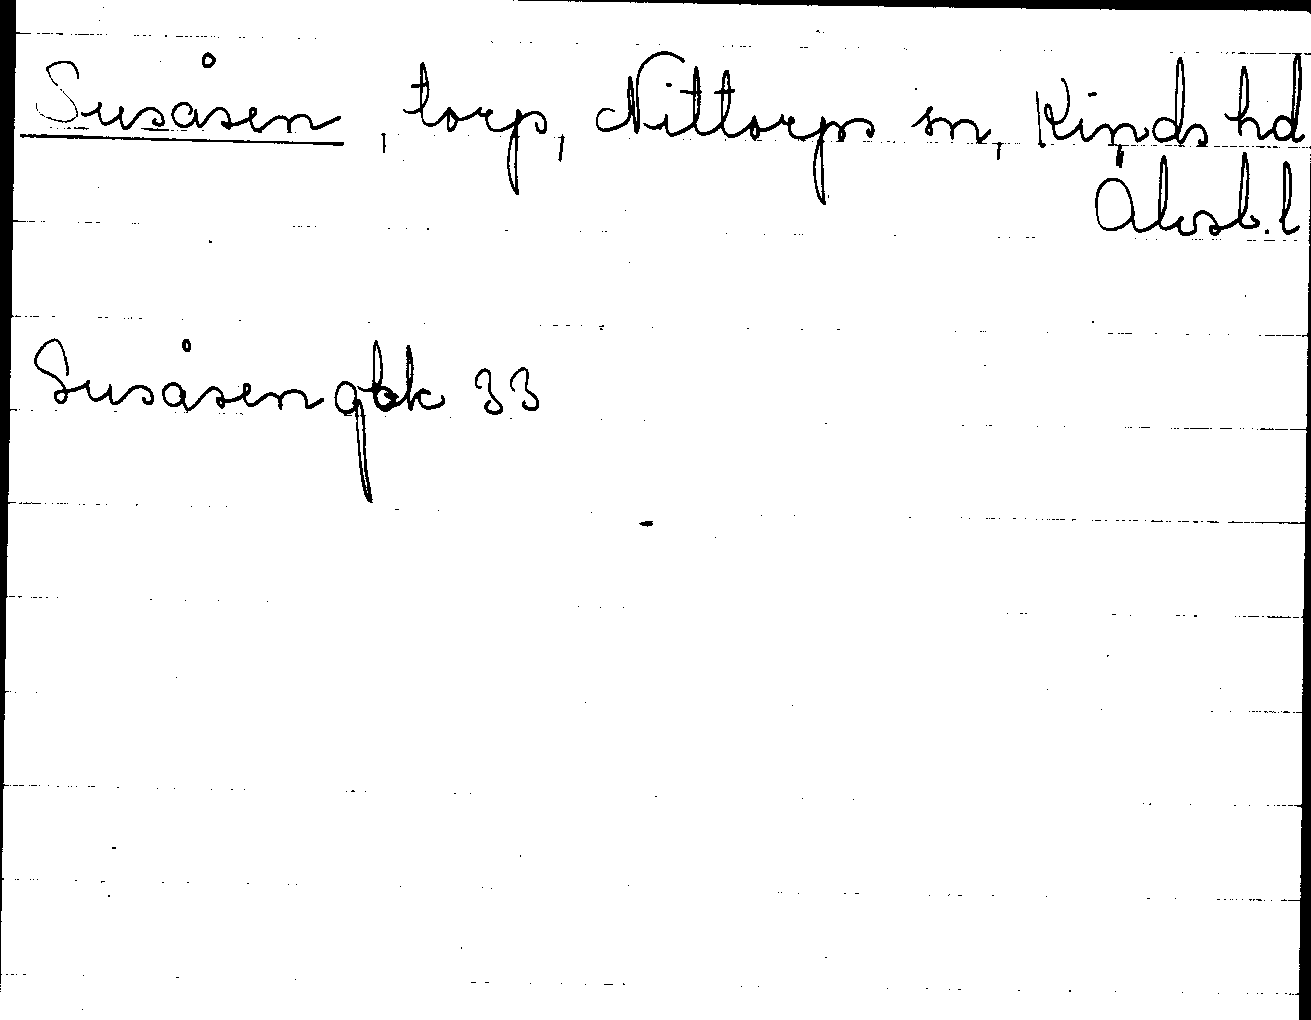 Susåsen, torp, Nittorps sn, Kinds hd
Älvsb. l
Susåsen gbk 33